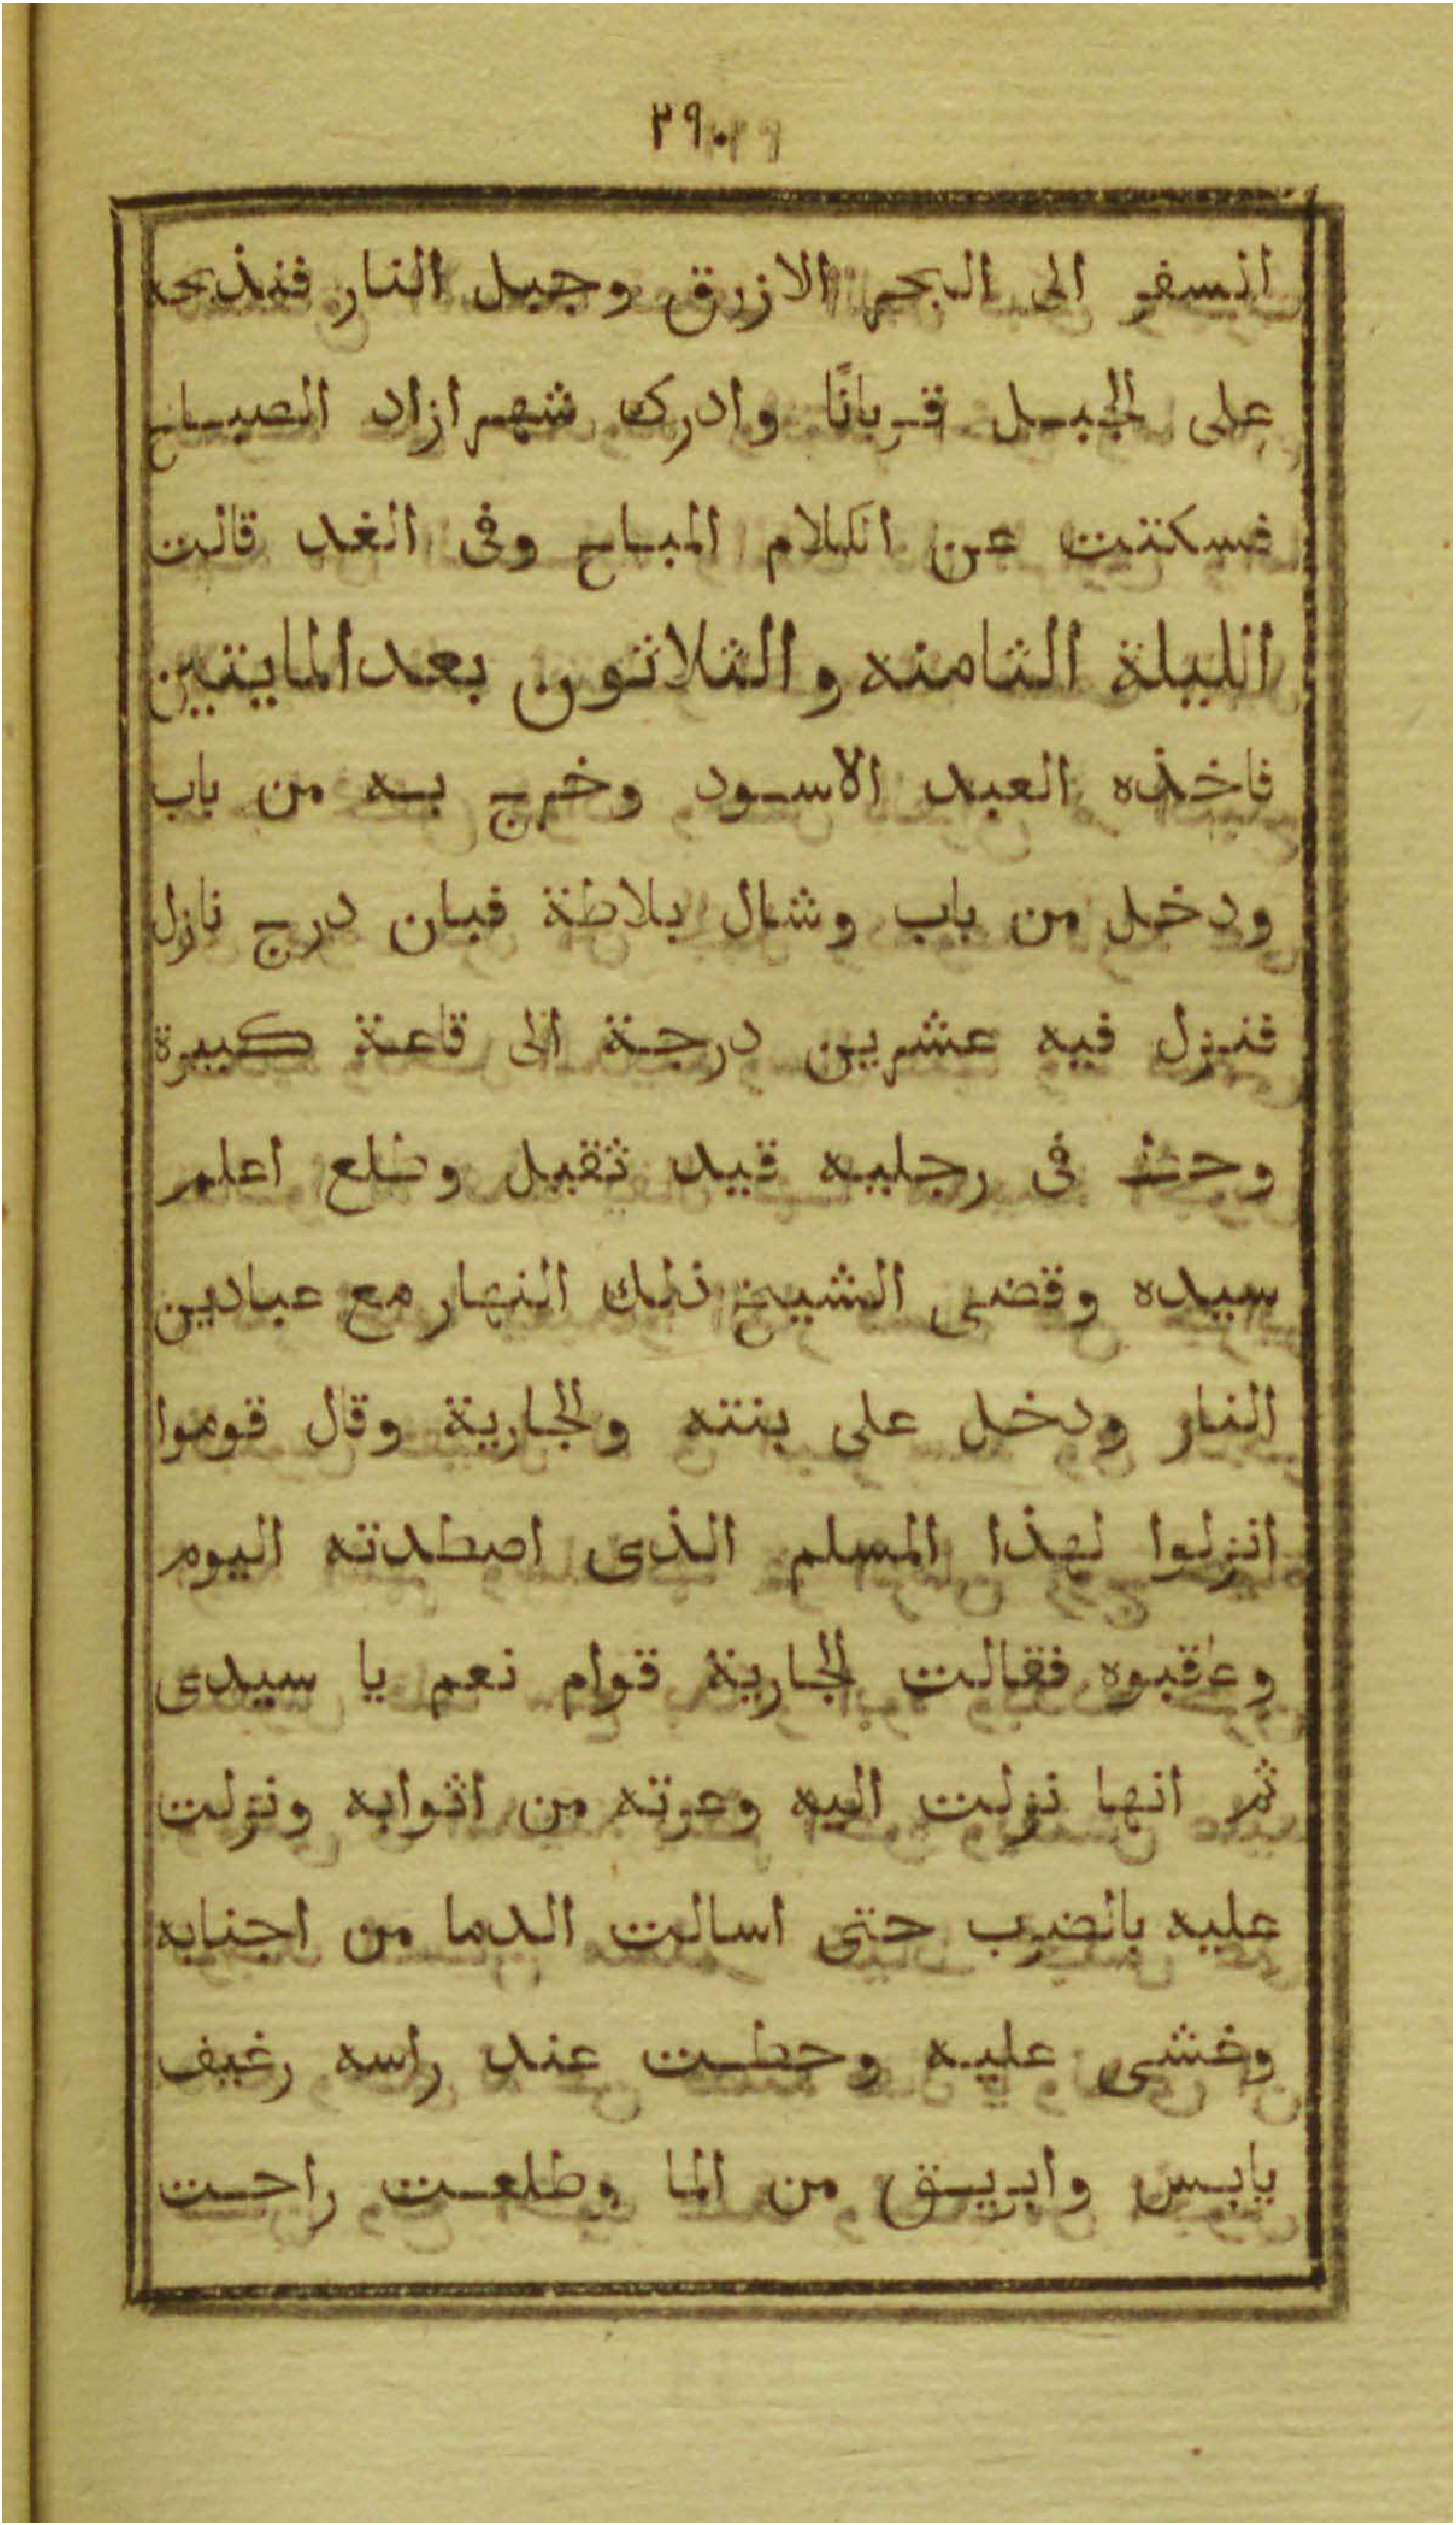 ٢٩٠
السفر الى البحر الازرق وجبل النار فنذبحه
على الجبل قربانًا وادرك شهرازاد الصباح
فسكتت عن الكلام المباح وفى الغد قالت
الليلة الثامنه والثلاثون بعد المايتين
فاخذه العبد الاسود وخرج به من باب
ودخل من باب وشال بلاطة فبان درج نازل
فنزل فيه عشرين درجة الى قاعة كبيرة
وحط فى رجليه قيد ثقيل وطلع اعلم
سيده وقضى الشيخ ذلك النهار مع عبادين
النار ودخل على بنته والجارية وقال قوموا
انزلوا لهذا المسلم الذى اصطدته اليوم
وعاقبوه فقالت الجارية قوام نعم يا سيدى
ثم انها نزلت اليه وعرته من اثوابه ونزلت
عليه بالضرب حتى اسالت الدما من اجنابه
وغشى عليه وحطت عند راسه رغيف
يابس وابريق من الما وطلعت راحت